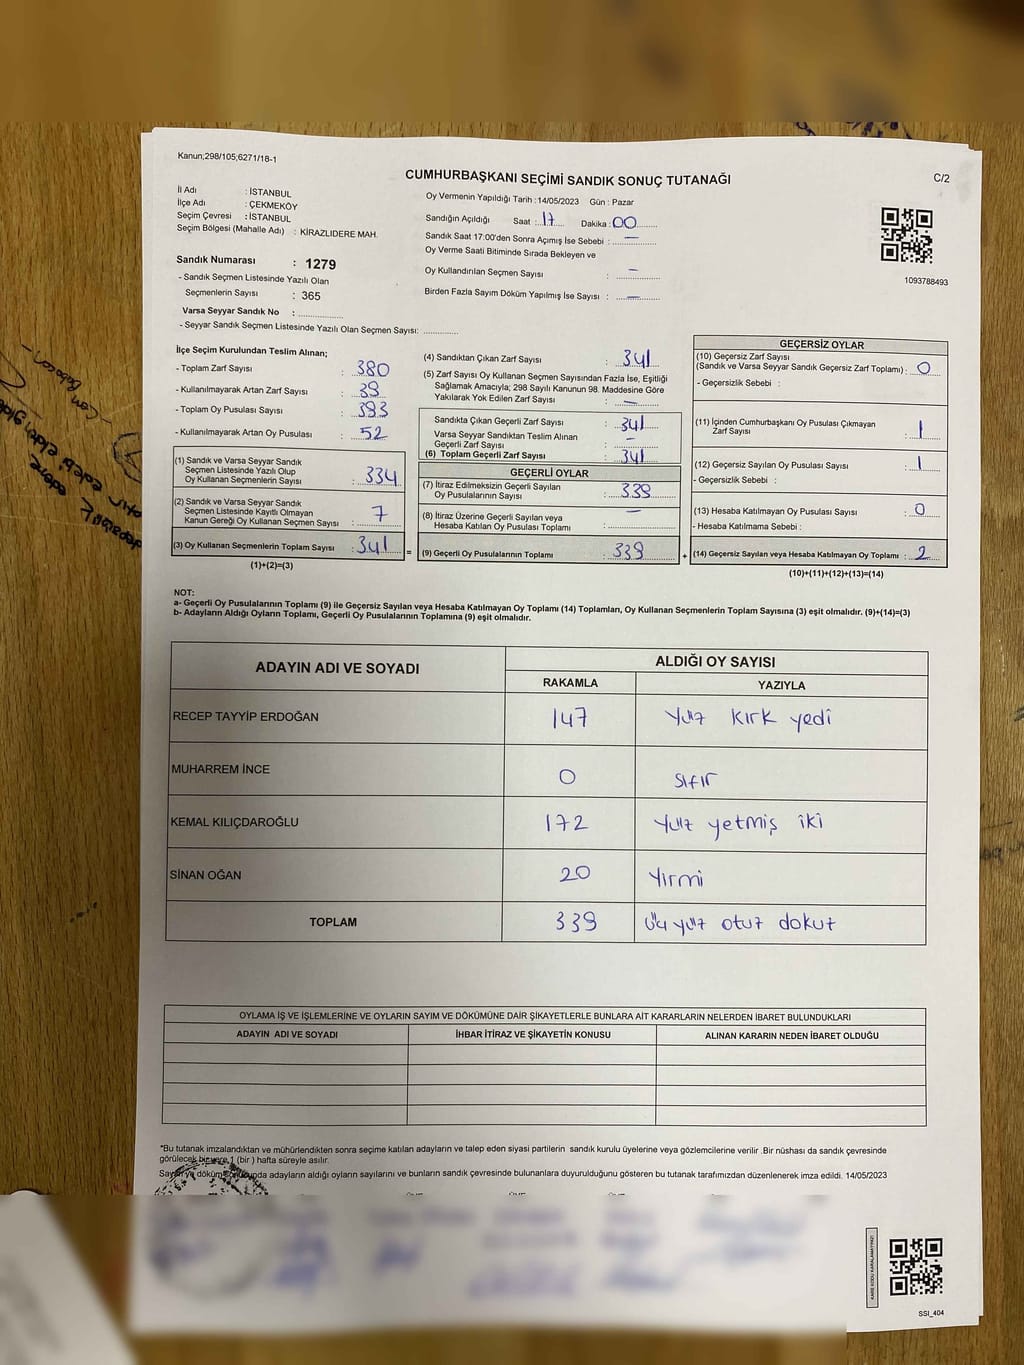 Kanun;298/105;6271/18-1
CUMHURBAŞKANI SEÇİMİ SANDIK SONUÇ TUTANAĞI
C/2
İl Adı : İSTANBUL
İlçe Adı : ÇEKMEKÖY
Seçim Çevresi : İSTANBUL
Seçim Bölgesi (Mahalle Adı) : KİRAZLIDERE MAH.
Sandık Numarası : 1279
- Sandık Seçmen Listesinde Yazılı Olan
Seçmenlerin Sayısı : 365
Varsa Seyyar Sandık No :
- Seyyar Sandık Seçmen Listesinde Yazılı Olan Seçmen Sayısı:
Oy Vermenin Yapıldığı Tarih : 14/05/2023 Gün : Pazar
Sandığın Açıldığı Saat : 17 Dakika : 00
Sandık Saat 17:00'den Sonra Açımış İse Sebebi : —
Oy Verme Saati Bitiminde Sırada Bekleyen ve
Oy Kullandırılan Seçmen Sayısı : —
Birden Fazla Sayım Döküm Yapılmış İse Sayısı : —
1093788493
İlçe Seçim Kurulundan Teslim Alınan;
- Toplam Zarf Sayısı : 380
- Kullanılmayarak Artan Zarf Sayısı : 39
- Toplam Oy Pusulası Sayısı : 393
- Kullanılmayarak Artan Oy Pusulası : 52
(1) Sandık ve Varsa Seyyar Sandık
Seçmen Listesinde Yazılı Olup
Oy Kullanan Seçmenlerin Sayısı : 334
(2) Sandık ve Varsa Seyyar Sandık
Seçmen Listesinde Kayıtlı Olmayan
Kanun Gereği Oy Kullanan Seçmen Sayısı : 7
(3) Oy Kullanan Seçmenlerin Toplam Sayısı : 341
(1)+(2)=(3)
=
(4) Sandıktan Çıkan Zarf Sayısı : 341
(5) Zarf Sayısı Oy Kullanan Seçmen Sayısından Fazla İse, Eşitliği
Sağlamak Amacıyla; 298 Sayılı Kanunun 98. Maddesine Göre
Yakılarak Yok Edilen Zarf Sayısı : —
Sandıkta Çıkan Geçerli Zarf Sayısı : 341
Varsa Seyyar Sandıktan Teslim Alınan
Geçerli Zarf Sayısı : —
(6) Toplam Geçerli Zarf Sayısı : 341
GEÇERLİ OYLAR
(7) İtiraz Edilmeksizin Geçerli Sayılan
Oy Pusulalarının Sayısı : 339
(8) İtiraz Üzerine Geçerli Sayılan veya
Hesaba Katılan Oy Pusulası Toplamı : —
(9) Geçerli Oy Pusulalarının Toplamı : 339
+
GEÇERSİZ OYLAR
(10) Geçersiz Zarf Sayısı
(Sandık ve Varsa Seyyar Sandık Geçersiz Zarf Toplamı) : 0
- Geçersizlik Sebebi :
(11) İçinden Cumhurbaşkanı Oy Pusulası Çıkmayan
Zarf Sayısı : 1
(12) Geçersiz Sayılan Oy Pusulası Sayısı : 1
- Geçersizlik Sebebi :
(13) Hesaba Katılmayan Oy Pusulası Sayısı : 0
- Hesaba Katılmama Sebebi :
(14) Geçersiz Sayılan veya Hesaba Katılmayan Oy Toplamı : 2
(10)+(11)+(12)+(13)=(14)
NOT:
a- Geçerli Oy Pusulalarının Toplamı (9) ile Geçersiz Sayılan veya Hesaba Katılmayan Oy Toplamı (14) Toplamları, Oy Kullanan Seçmenlerin Toplam Sayısına (3) eşit olmalıdır. (9)+(14)=(3)
b- Adayların Aldığı Oyların Toplamı, Geçerli Oy Pusulalarının Toplamına (9) eşit olmalıdır.
ADAYIN ADI VE SOYADI
ALDIĞI OY SAYISI
RAKAMLA YAZIYLA
RECEP TAYYİP ERDOĞAN 147 Yüz kırk yedi
MUHARREM İNCE 0 sıfır
KEMAL KILIÇDAROĞLU 172 Yüz yetmiş iki
SİNAN OĞAN 20 Yirmi
TOPLAM 339 üç yüz otuz dokuz
OYLAMA İŞ VE İŞLEMLERİNE VE OYLARIN SAYIM VE DÖKÜMÜNE DAİR ŞİKAYETLERLE BUNLARA AİT KARARLARIN NELERDEN İBARET BULUNDUKLARI
ADAYIN ADI VE SOYADI İHBAR İTİRAZ VE ŞİKAYETİN KONUSU ALINAN KARARIN NEDEN İBARET OLDUĞU
*Bu tutanak imzalandıktan ve mühürlendikten sonra seçime katılan adayların ve talep eden siyasi partilerin sandık kurulu üyelerine veya gözlemcilerine verilir .Bir nüshası da sandık çevresinde
görülecek bir yere 1 (bir ) hafta süreyle asılır.
Sayım ve döküm sonunda adayların aldığı oyların sayılarını ve bunların sandık çevresinde bulunanlara duyurulduğunu gösteren bu tutanak tarafımızdan düzenlenerek imza edildi. 14/05/2023
KARE KODU KARALAMAYINIZ!
SSI_404